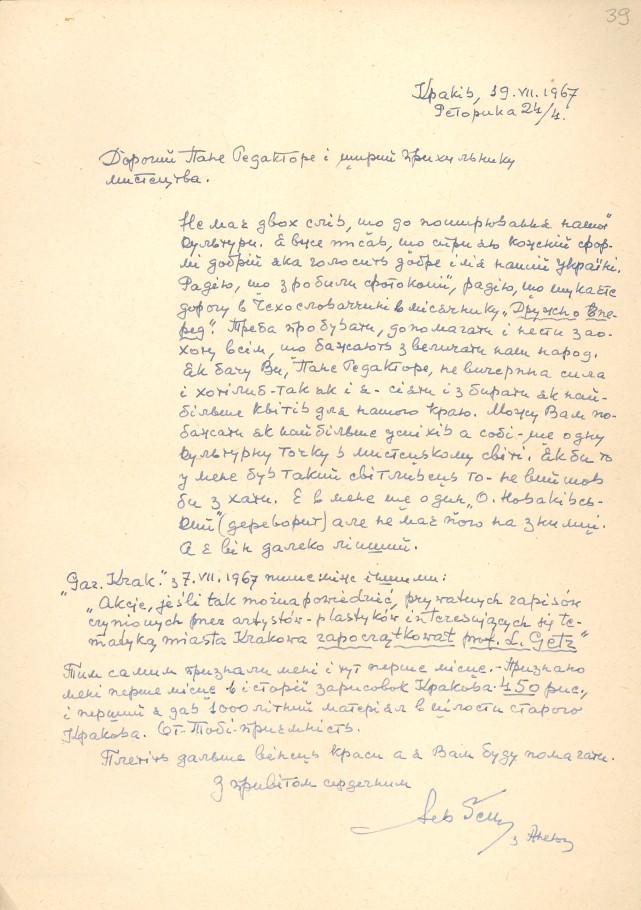 39
Краків, 19.VII.1967
Реторика 24/4.
Дорогий Пане Редакторе і щирий прихильнику
мистецтва.
Не має двох слів, що до поширювання нашої
культури. Я вже писав, що сприяю кожній фор-
мі добрій яка голосить добре імя нашій Україні.
Радію, що зробили фотокопії, радію, що шукаєте
дорогу в Чехословаччині в місячнику „Дружно впе-
ред". Треба пробувати, допомагати і нести зао-
хоту всім, що бажають звеличати наш народ.
Як бачу Ви, Пане Редакторе, не вичерпна сила
і хотілиб - так як і я - сіяти і збирати як най-
більше квітів для нашого краю. Можу Вам по-
бажати як найбільше успіхів а собі - ще одну
культурну точку в мистецькому світі. Якби то
у мене був такий світливець то - не вийшов
би з хати. Є в мене ще один „О. Новаківсь-
кий" (дереворит) але не має його на знимці.
А я він далеко ліпший.
„Gaz. Krak." з 7.VII.1967 пише між іншими:
„Akcję, jeśli tak można powiedzieć, prywatnych zapisów
czynionych przez artystów-plastyków interesujących się te-
matyką miasta Krakowa zapoczątkował prof. L. Getz"
Тим самим признали мені і тут перше місце. - Признано
мені перше місце в історії зарисовок Кракова - 450 рис.,
і перший я дав 1000 літний матеріял в цілости старого
Кракова. От Тобі - приємність.
Плетіть дальше вінець краси а я Вам буду помагати.
З привітом сердечним
Лев Ґец
з